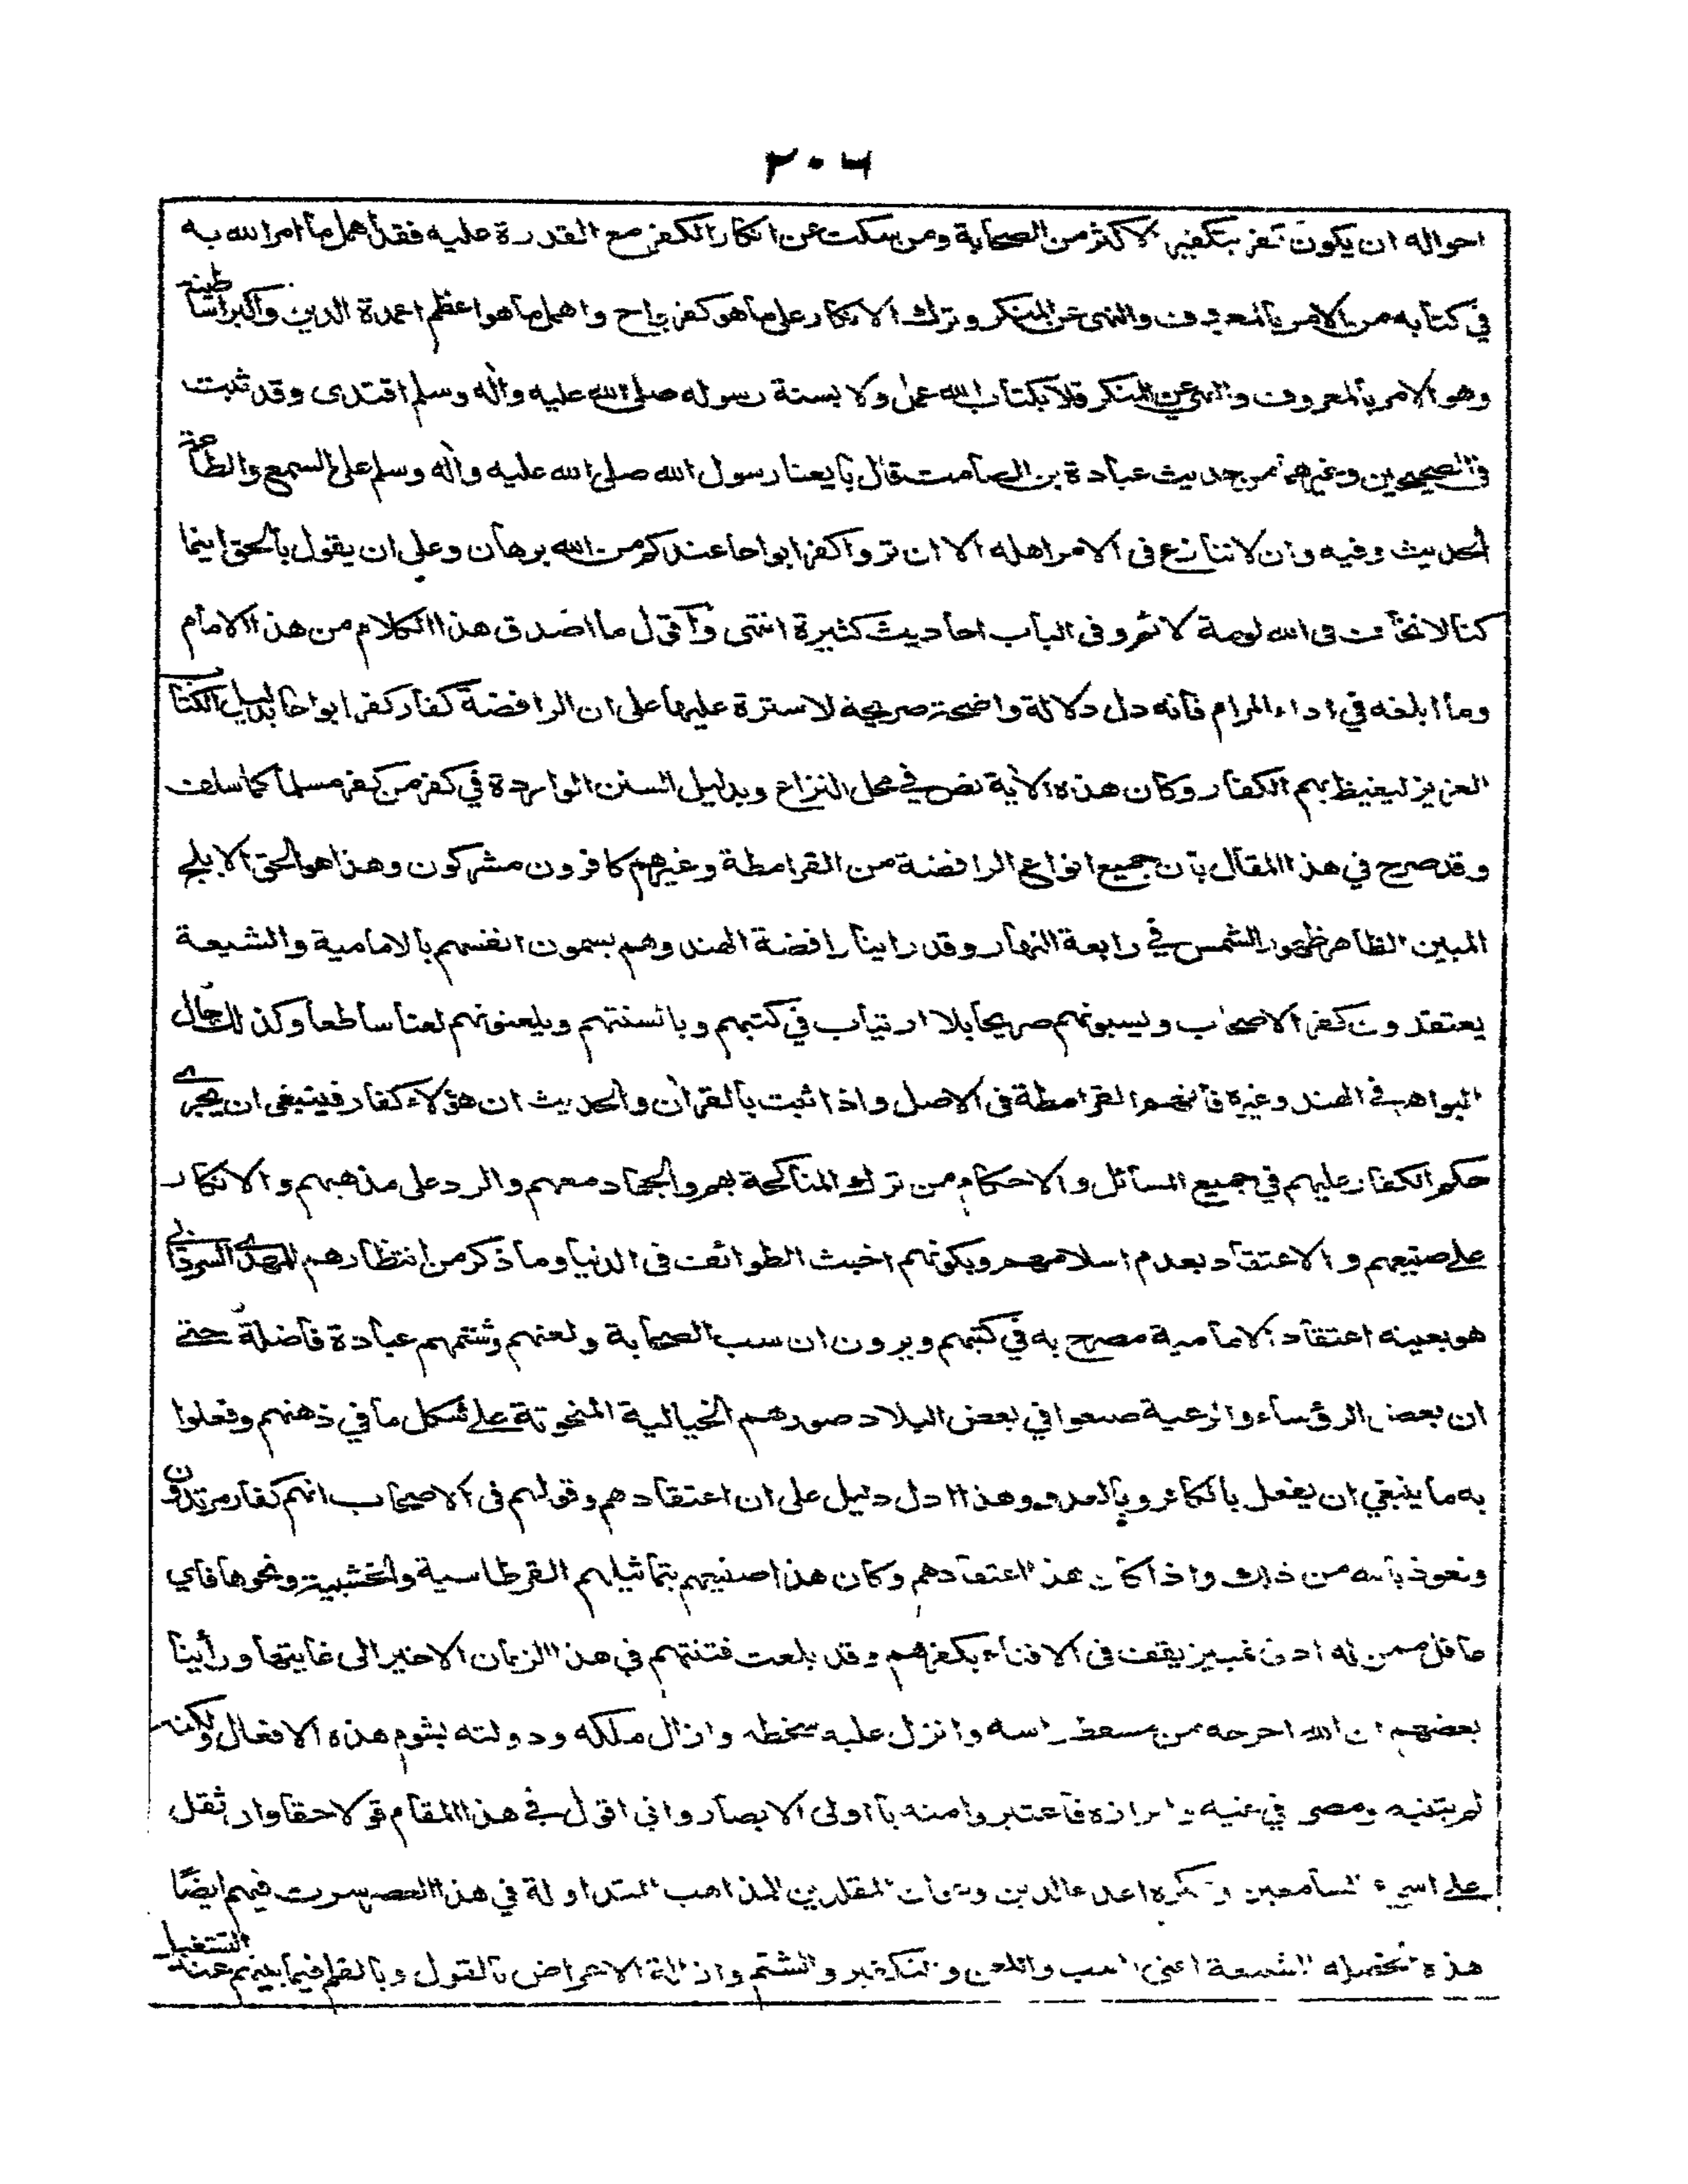 ٢٠٦
احواله ان يكون كفر بتكفير الاكثر من الصحابة ومن سكت عن انكار الكفر مع القدرة عليه فقد اهمل ما امر الله به
في كتابه من الامر بالمعروف والنهى عن المنكر وترك الانكار على ما هو كفر بواح واهمل ما هو اعظم اعمدة الدين واكبر اساطينه
وهو الامر بالمعروف والنهى عن المنكر فلا بكتاب الله عمل ولا بسنة رسوله صلى الله عليه واله وسلم اقتدى وقد ثبت
فى الصحيحين وغيرهما من حديث عبادة بن الصامت قال بايعنا رسول الله صلى الله عليه واله وسلم على السمع والطاعة
الحديث وفيه وان لا ننازع فى الامر اهله الا ان تروا كفرا بواحا عندكم من الله برهان وعلى ان يقول بالحق اينما
كنا لا نخاف فى الله لومة لائم وفى الباب احاديث كثيرة انتهى واقول ما اصدق هذا الكلام من هذا الامام
وما ابلغه في اداء المرام فانه دل دلالة واضحة صريحة لا سترة عليها على ان الرافضة كفار كفرا بواحا بدليل الكتاب
العزيز ليغيظ بهم الكفار وكان هذه الاية نص في محل النزاع وبدليل السنن الواردة في كفر من كفر مسلما كما سلف
وقد صرح في هذا المقال بان جميع انواع الرافضة من القرامطة وغيرهم كافرون مشركون وهذا هو الحق الابلج
المبين الظاهر ظهور الشمس في رابعة النهار وقد راينا رافضة الهند وهم يسمون انفسهم بالامامية والشيعة
يعتقدون كفر الاصحاب ويسبونهم صريحا بلا ارتياب في كتبهم وبالسنتهم ويلعنونهم لعنا ساطعا وكذلك حال
البواهر في الهند وغيره فانهم القرامطة فى الاصل واذا ثبت بالقران والحديث ان هؤلاء كفار فينبغى ان يجرے
حكم الكفار عليهم في جميع المسائل والاحكام من ترك المناكحة بهم والجهاد معهم والرد على مذهبهم والانكار
على صنيعهم والاعتقاد بعدم اسلامهم وبكونهم اخبث الطوائف فى الدنيا وما ذكر من انتظارهم للمهدے السردابى
هو بعينه اعتقاد الامامية مصرح به في كتبهم ويرون ان سب الصحابة ولعنهم وشتمهم عبادة فاضلة حتے
ان بعض الرؤساء والرعية صنعوا في بعض البلاد صورهم الخيالية المنحوتة على شكل ما في ذهنهم وفعلوا
به ما ينبغي ان يفعل بالكافر وبالعدو وهذا ادل دليل على ان اعتقادهم وقولهم فى الاصحاب انهم كفار مرتدون
ونعوذ بالله من ذلك واذا كان هذا اعتقادهم وكان هذا صنيعهم بتماثيلهم القرطاسية والخشبية ونحوها فاي
عاقل ممن له ادنى تمييز يقف فى الافتاء بكفرهم وقد بلغت فتنتهم في هذا الزمان الاخير الى غايتها ورأينا
بعضهم ان الله اخرجه من مسقط راسه وانزل عليه سخطه وازال ملكه ودولته بشوم هذه الافعال ولكنه
لم يتنبه ومضى في غيه فاعتبروا منه يا اولى الابصار واني اقول في هذا المقام قولا حقا وان ثقل
على السامعين اعداء الدين المقلدين المذاهب المتداولة في هذا العصر سرت فيهم ايضا
هذه الخصلة الشنيعة اعنى السب واللعن والتكفير والشتم وازالة الاعراض بالقول وبالقلم فيما بينهم عند